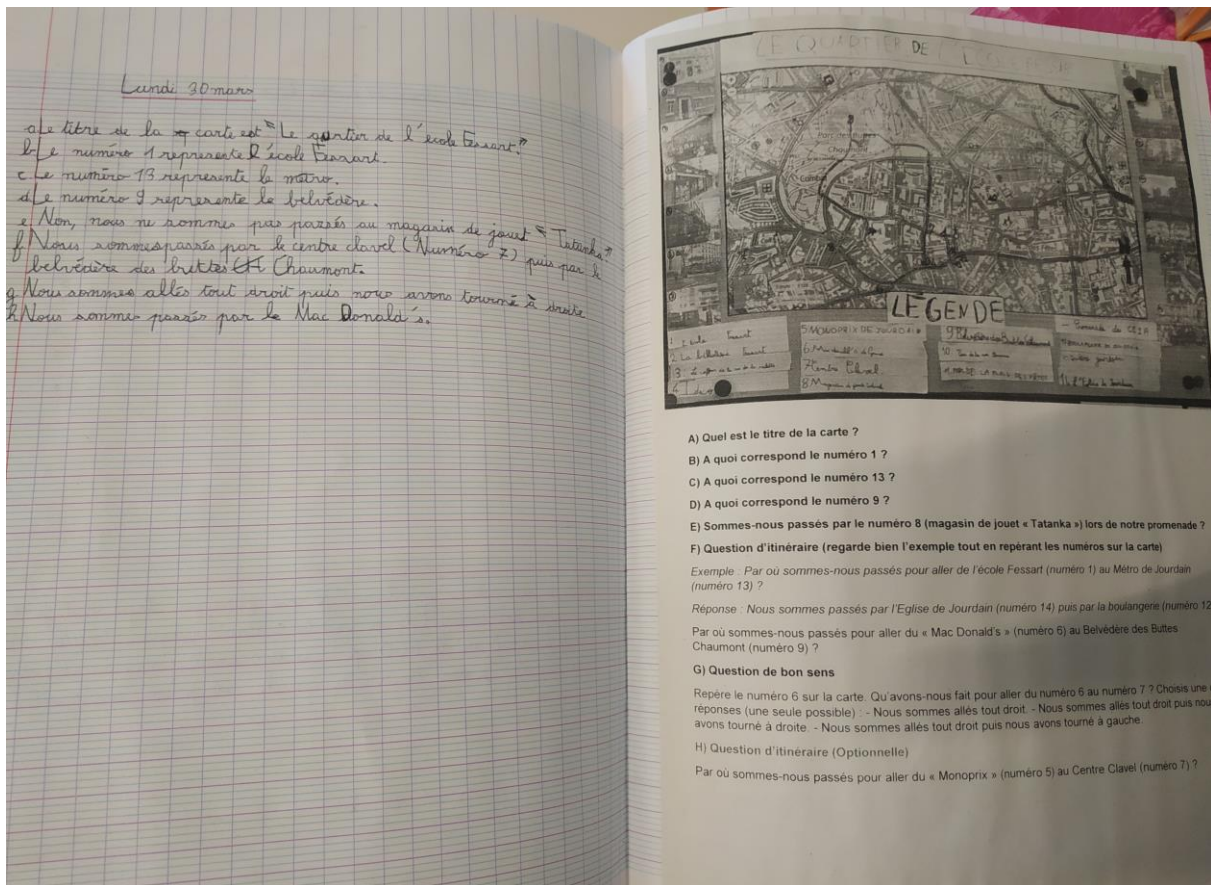 Lundi 30 mars
a Le titre de la carte est "Le quartier de l'école Fessart."
b Le numéro 1 represente l'école Fessart.
c Le numéro 13 represente le métro.
d Le numéro 9 represente le belvédère.
e Non, nous ne sommes pas passés au magasin de jouet "Tatanka"
f Nous sommes passés par le centre clavel (Numéro 7) puis par le
belvédère des buttes Chaumont.
g Nous sommes allés tout droit puis nous avons tourné à droite
h Nous sommes passés par le Mac Donald's.
LE QUARTIER DE L'ECOLE
LEGENDE
1 Ecole Fessart
5 MONOPRIX DE JOURDAIN
7 Centre Clavel
A) Quel est le titre de la carte ?
B) A quoi correspond le numéro 1 ?
C) A quoi correspond le numéro 13 ?
D) A quoi correspond le numéro 9 ?
E) Sommes-nous passés par le numéro 8 (magasin de jouet « Tatanka ») lors de notre promenade ?
F) Question d'itinéraire (regarde bien l'exemple tout en repérant les numéros sur la carte)
Exemple : Par où sommes-nous passés pour aller de l'école Fessart (numéro 1) au Métro de Jourdain
(numéro 13) ?
Réponse : Nous sommes passés par l'Eglise de Jourdain (numéro 14) puis par la boulangerie (numéro 12
Par où sommes-nous passés pour aller du « Mac Donald's » (numéro 6) au Belvédère des Buttes
Chaumont (numéro 9) ?
G) Question de bon sens
Repère le numéro 6 sur la carte. Qu'avons-nous fait pour aller du numéro 6 au numéro 7 ? Choisis une
réponses (une seule possible) : - Nous sommes allés tout droit. - Nous sommes allés tout droit puis nou
avons tourné à droite. - Nous sommes allés tout droit puis nous avons tourné à gauche.
H) Question d'itinéraire (Optionnelle)
Par où sommes-nous passés pour aller du « Monoprix » (numéro 5) au Centre Clavel (numéro 7) ?